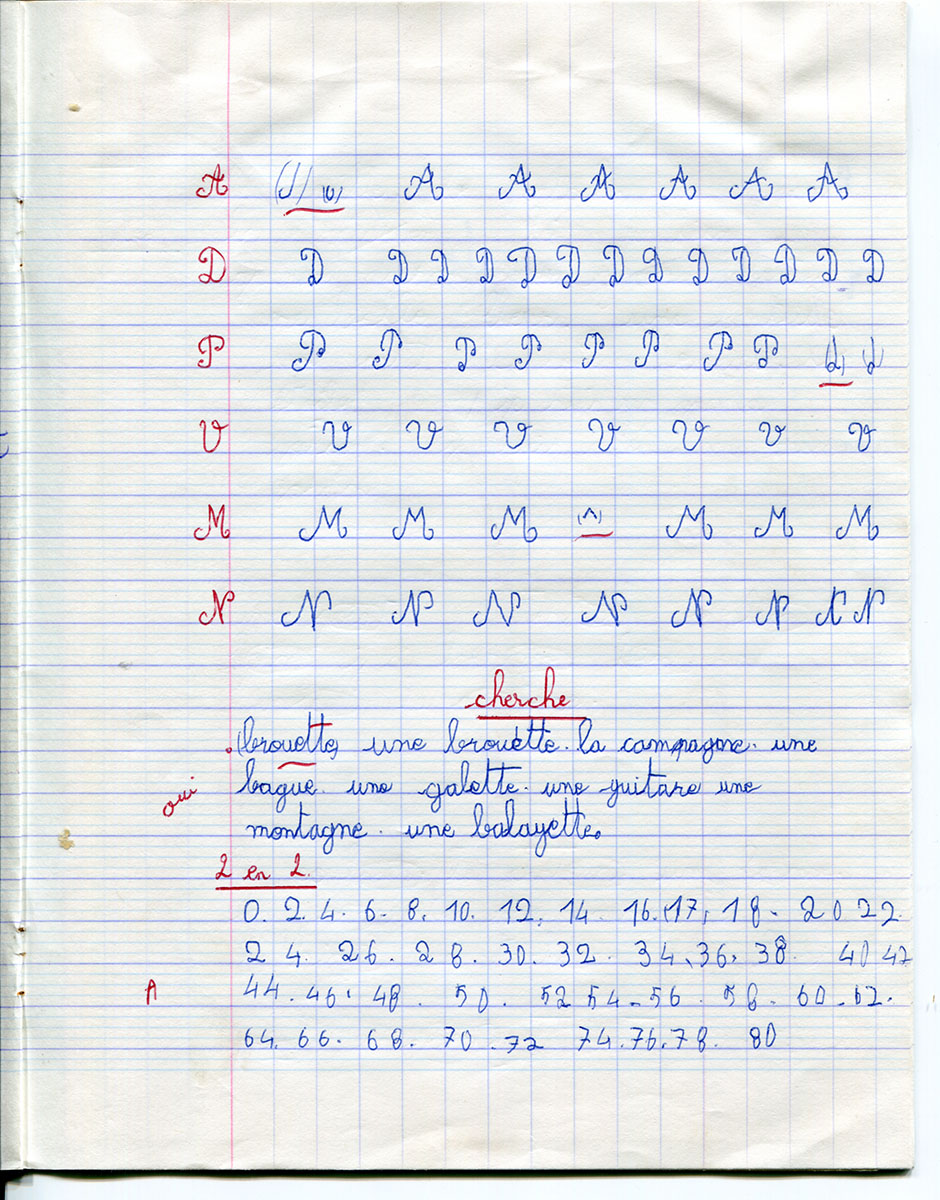 A A A A A A A
D D D D D D D D D D D D D D
P P P P P P P P P
V V V V V V V V
M M M M M M M
N N N N N N N N N
cherche
(brouette) une brouette. la campagne. une
oui bague. une galette. une guitare une
montagne. une balayette.
2 en 2.
0. 2. 4. 6. 8. 10. 12. 14. 16. (17) 18. 20 22.
24. 26. 28. 30. 32. 34. 36. 38. 40 42
A 44. 46. 48. 50. 52 54. 56. 58. 60. 62.
64. 66. 68. 70. 72 74. 76. 78. 80